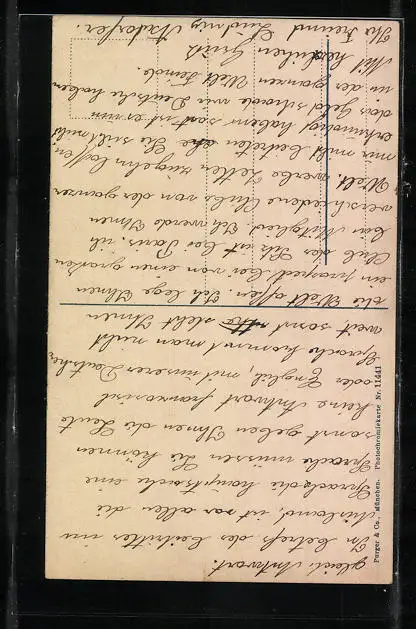 gleich Antwort.
In betreff des beitritts ins
Ausland, ist vor allen die
Sprache die hauptsache eine
Sprache müssen Sie können
sonst geben Ihnen die Leute
keine Antwort französisch
oder Englisch, mit unserer Deutschen
Sprache kommt man nicht
weit, sonst steht Ihnen
die Welt offen. Ich lege Ihnen
ein prospect bei von einen grossen
Club der Sitz ist bei Paris, ich
bin Mitglied. Ich werde Ihnen
verschiedene Clubs von der ganzen
Welt, werbe Zettel zugehen lassen,
nur nicht beitreten ehe Sie sich nicht
erkundigt haben sonst ist es um
das Geld schade wir Deutsche haben
in der ganzen Welt Feinde.
Mit herzlichen Gruss
Ihr Freund Ludwig
Purger & Co., München. Photochromiekarte Nr. 11441